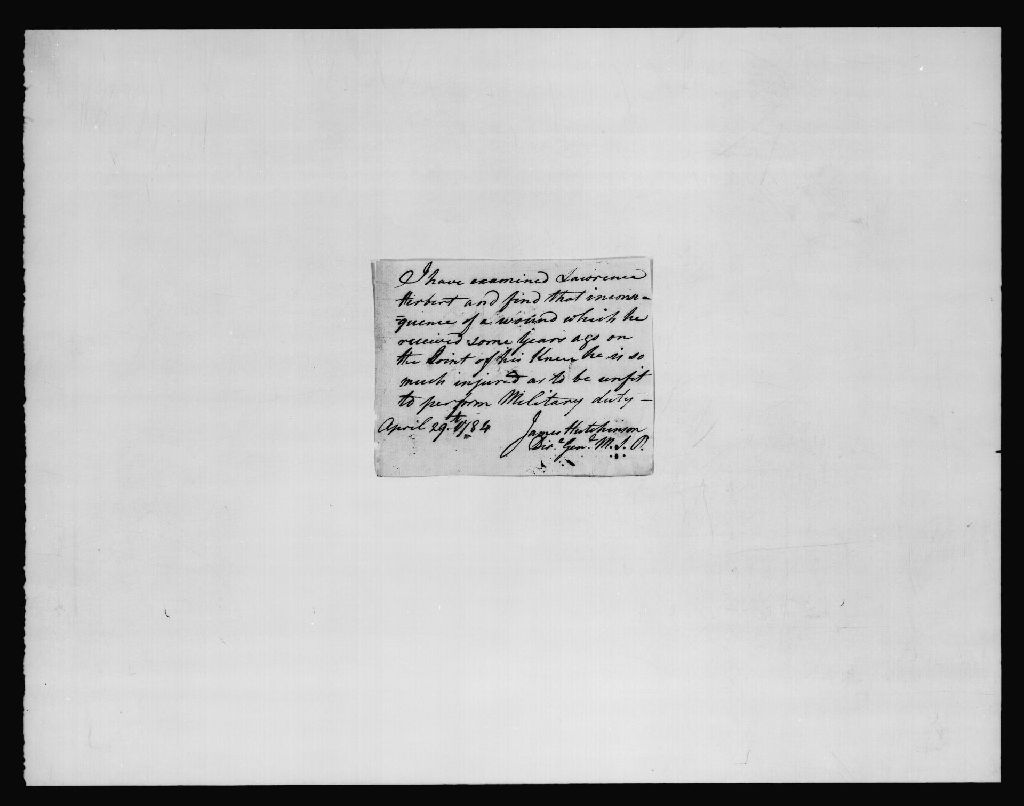 I have examined Lawrence
Herbert and find that inconse=
=quence of a wound which he
received some Years ago on
the Joint of his Knee, he is so
much injured as to be unfit
to perform Military duty —
April 29.th 1784
James Hutchinson
Dir.r Gen.l M. S. P.